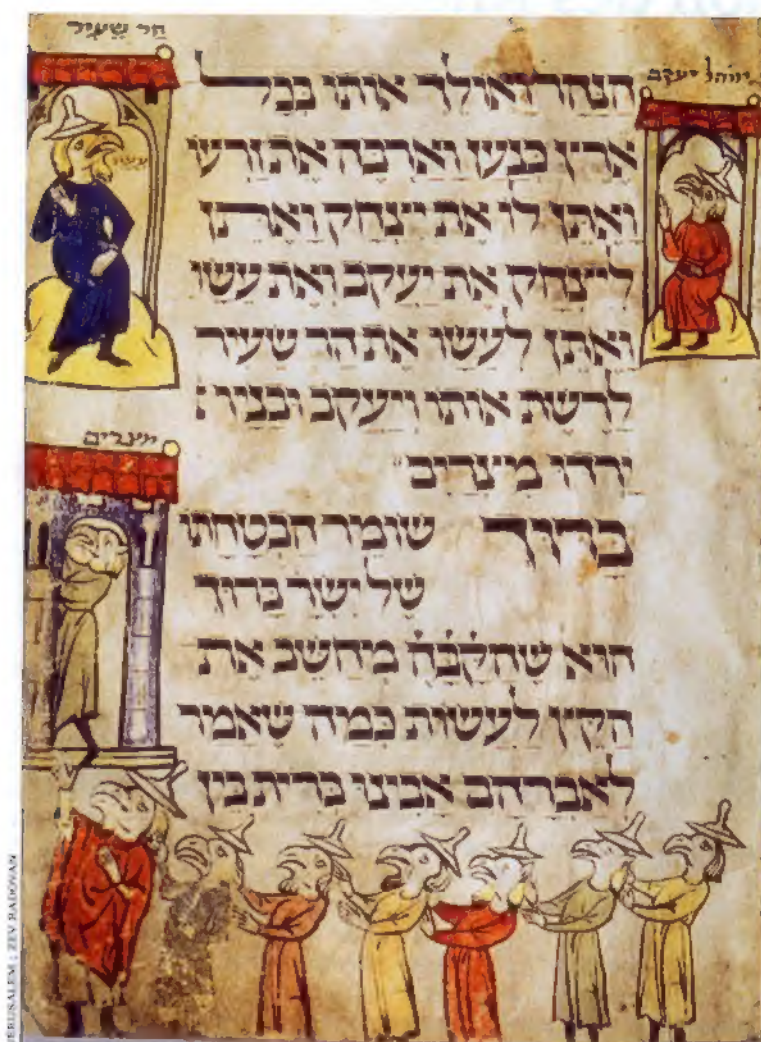 הר שעיר
יעקב
עשו
הנהר ואולך אותו בכל
ארץ כנען וארבה את זרעו
ואתן לו את יצחק ואתן
ליצחק את יעקב ואת עשו
ואתן לעשו את הר שעיר
לרשת אותו ויעקב ובניו
ירדו מיצרים
מצרים
ברוך שומר הבטחתו
של ישר ברוך
הוא שהקבה מחשב את
הקץ לעשות כמה שאמר
לאברהם אבינו ברית בין
JERUSALEM ; ZEV RADOVAN